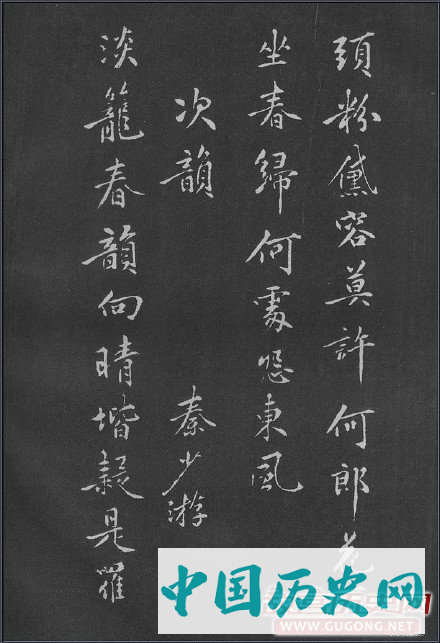 頭粉黛容莫許何郎花
坐春歸何處怨東風
次韻 秦少游
淡籠春韻向晴堦疑是羅
中国历史网
WWW.GUGONG.NET